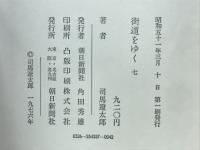 昭和五十一年三月 十 日 第一刷発行
街道をゆく 七
九二〇円
著者 司馬遼太郎
発行者 朝日新聞社 角田秀雄
印刷所 凸版印刷株式会社
発行所 朝日新聞社
東京・名古屋
大阪・北九州
©司馬遼太郎 一九七六年
0326-254327-0042